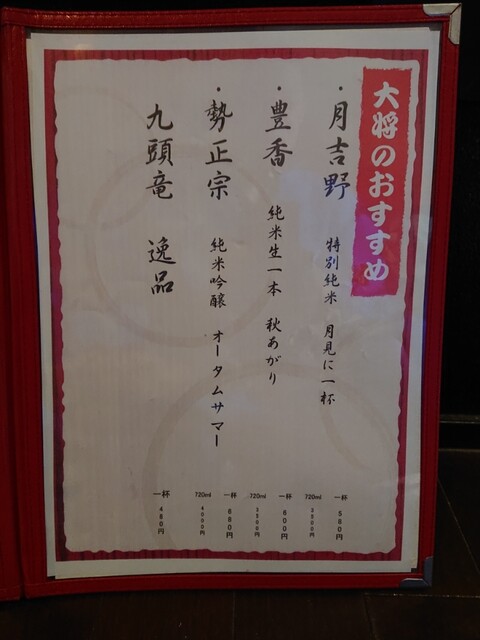 大将のおすすめ
・月吉野 特別純米 月見に一杯
一杯 560円
720ml 3500円
・豊香 純米生一本 秋あがり
一杯 600円
720ml 3500円
・勢正宗 純米吟醸 オータムサマー
一杯 680円
720ml 4000円
九頭竜 逸品
一杯 480円